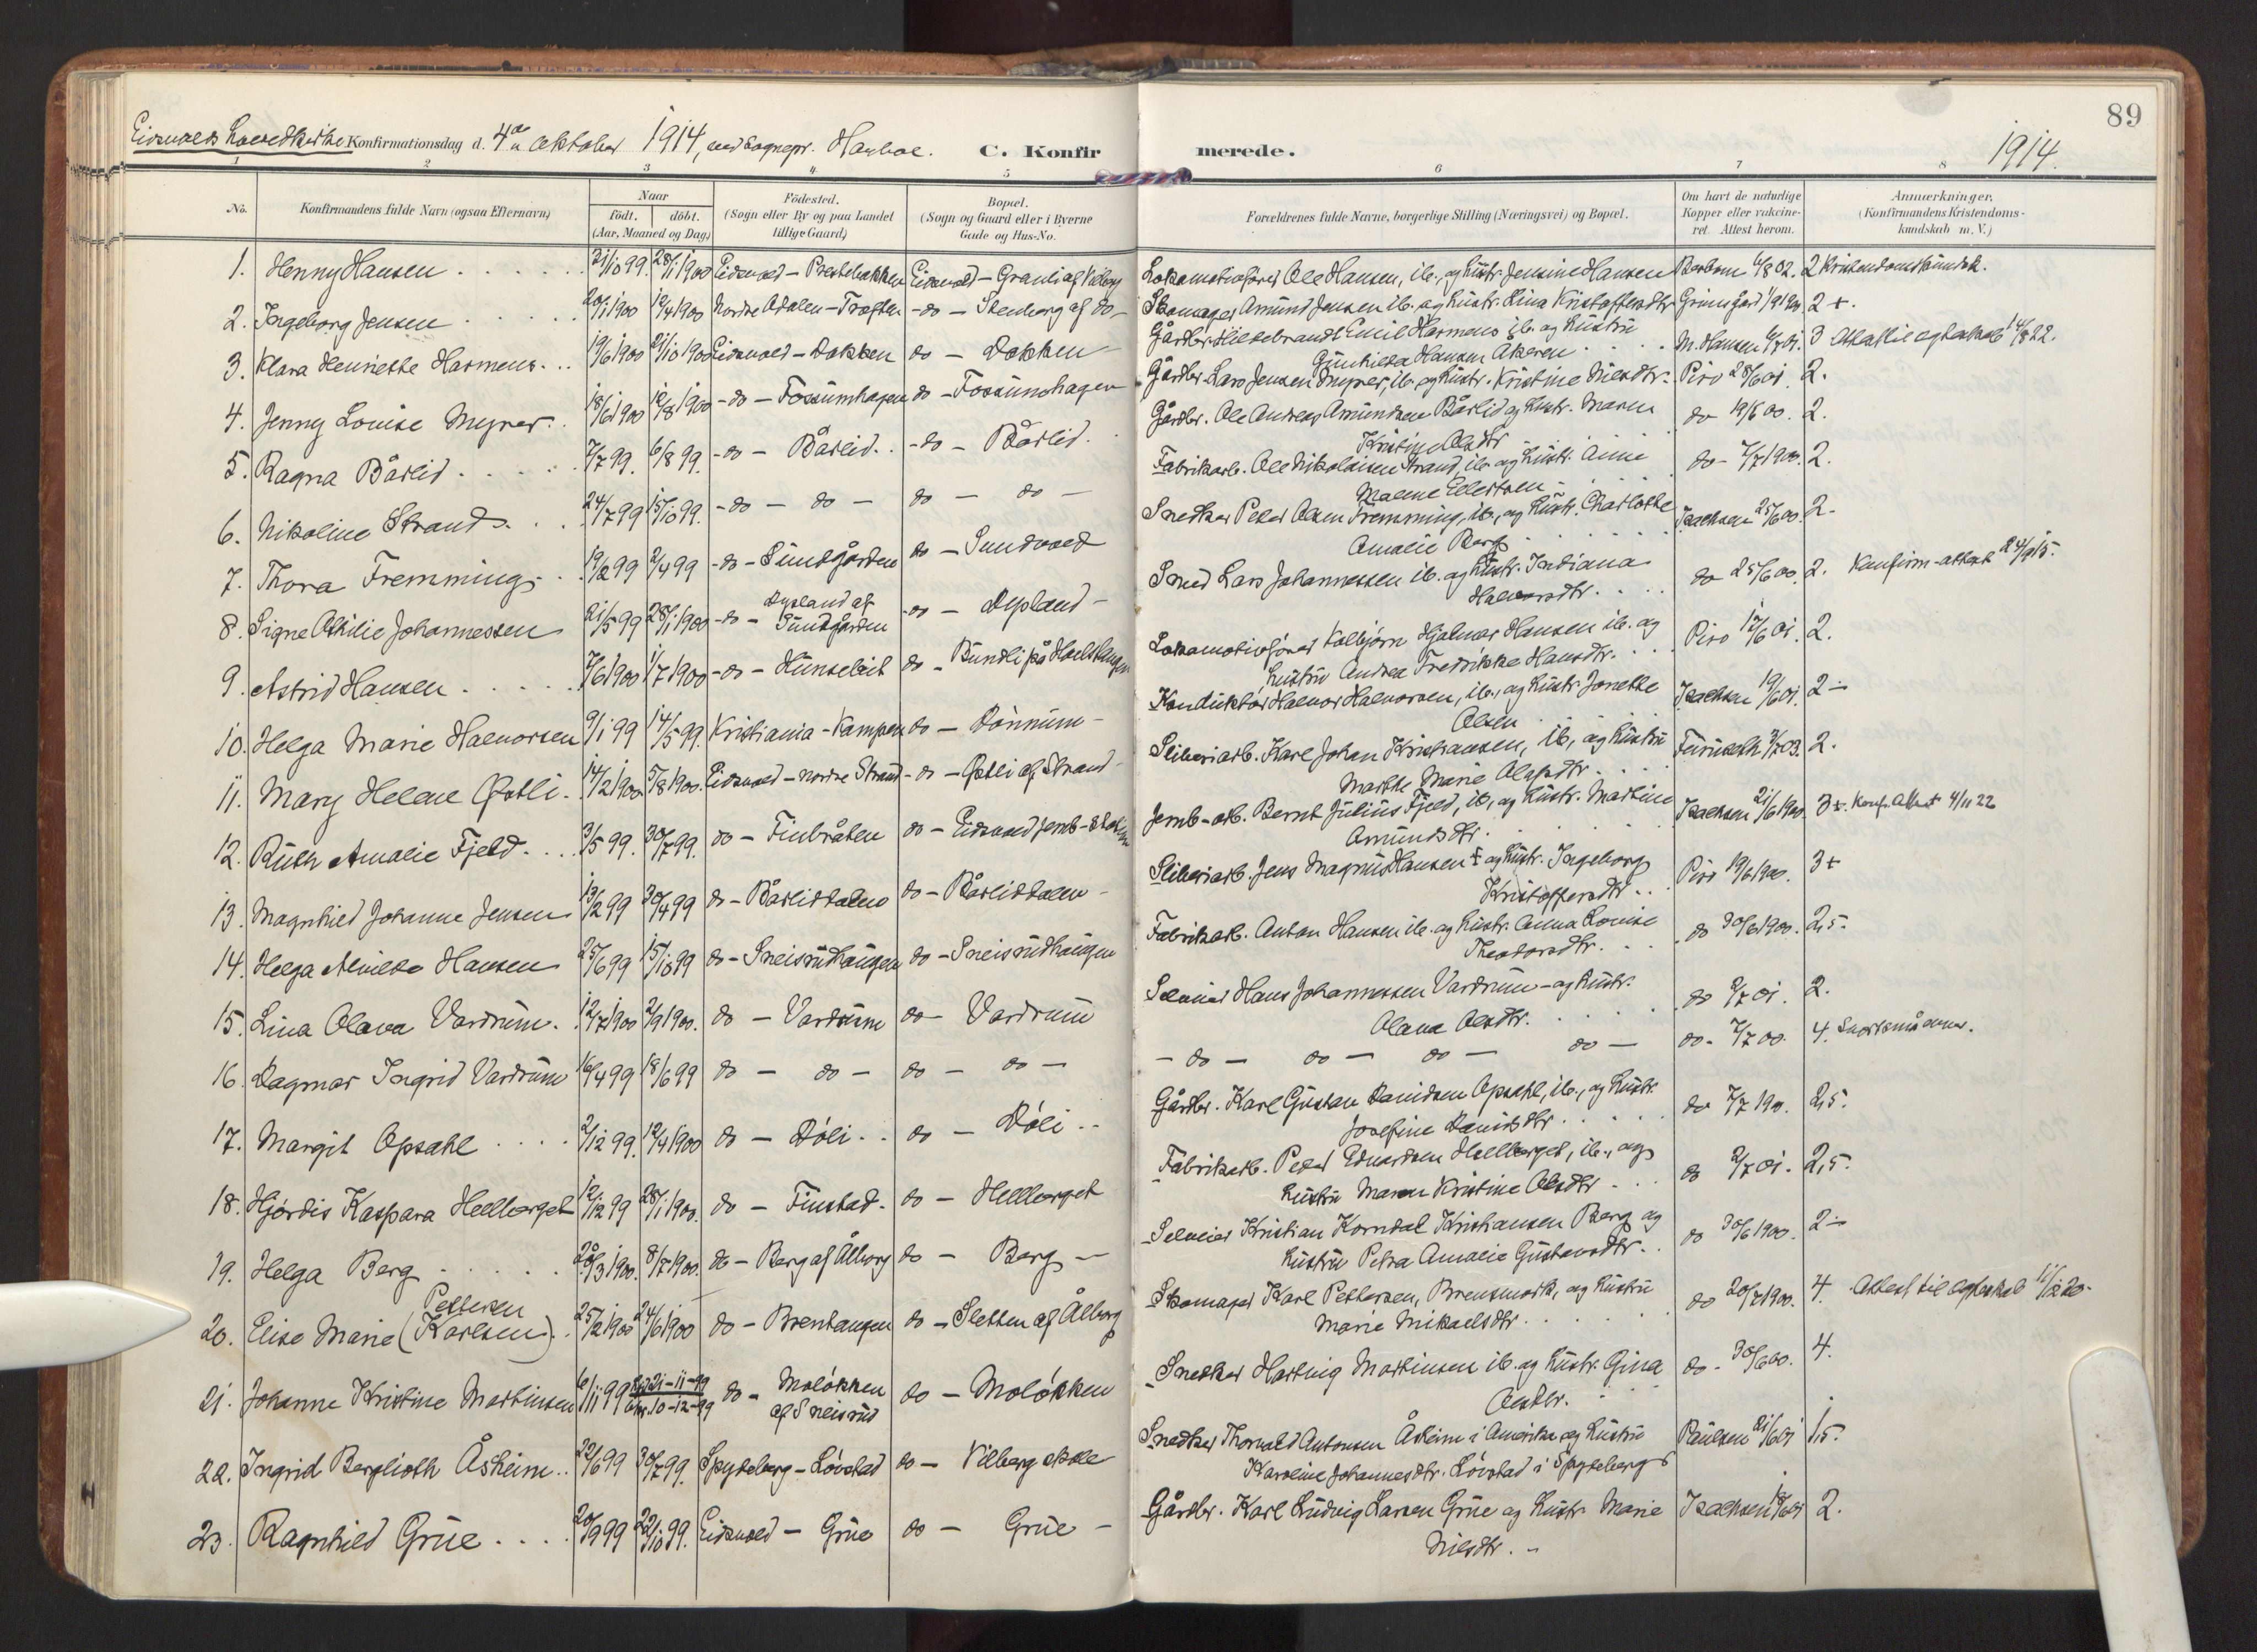 89
Eidsvolds hovedkirke Konfirmationsdag d. 4de oktober 1914, ved sognepr. C. Konfirmerede. 1914.
1 2 3 4 5 6 7 8
No. Konfirmandens fulde Navn (ogsaa Efternavn) Naar født. døbt. (Aar, Maaned og Dag.) Födested. (Sogn eller By og paa Landet tillige Gaard) Bopæl. (Sogn og Gaard eller i Byerne Gade og Hus-No. Forældrenes fulde Navne, borgerlige Stilling (Næringsvei) og Bopæl. Om havt de naturlige Kopper eller vaccineret. Attest herom. Anmærkninger, (Konfirmandens Kristendomskundskab m. V.)
1. Henny Hansen 21/10 99. 28/1 1900 Eidsvold - Prestebakken Eidsvold - Granli af Vilberg Lokomotivfører Ole Hansen, ib., og hustr. Jensine Hansen 2 Kristendomskundsk.
2. Ingeborg Jensen 20/1 1900 12/4 1900 Nordre Odalen - Trøften - do - Stenborg af do - Skomager Amund Jensen ib. og hustr. Lina Kristoffersdtr. 2 +.
3. Klara Henriette Harmens 19/6 1900 21/10 1900 Eidsvold - Dokken do - Dokken - Gårdbr. Hildebrandt Emil Harmens ib. og hustru
Gunhilda Hansen Åkeren M. Hansen 3 Attest til egteskab 14/8 22.
4. Jenny Louise Myrer 18/6 1900 12/8 1900 - do - Fossumhagen do - Fossumhagen Gårdbr. Lars Jensen Myrer, ib. og hustr. Kristine Nilsdtr. Piro 28/6 01. 2.
5. Ragna Bårlid 7/7 99. 6/8 99. - do - Bårlid. - do - Bårlid. Gårdbr. Ole Andreas Amundsen Bårlid og hustr. Maren
Kristine Olsdtr do 19/6 00. 2.
6. Nikoline Strand 24/7 99 15/10 99. - do - do - do - do - Fabrikarb. Ole Nikolaisen Strand, ib. og hustr. Anne
Malene Ellefsen do - 7/7 1900. 2.
7. Thora Fremming 19/2 99 2/4 99 - do - Sundgården do - Sundvold Snedker Peter Olsen Fremming, ib., og hustr. Charlotte
Amalie Berg Isachsen 25/6 00. 2.
8. Signe Othilie Johannessen 21/5 99 28/1 1900 - do - Dypland af Sundgården - do - Dypland - Smed Lars Johannessen ib. og hustr. Indiana
Halvorsdtr. do 25/6 00. 2. Konfirm-attest 24/9 15.
9. Astrid Hansen 7/6 1900 1/7 1900 - do - Hunselvit do - Bundli på Lokomotivfører Kolbjørn Hjalmar Hansen ib. og
hustru Andrea Fredrikke Hansdtr. Piro 12/6 01. 2.
10. Helga Marie Halvorsen 9/1 99 14/5 99. Kristiania - Kampen do - Dønnum - Konduktør Halvor Halvorsen, ib., og hustr. Jonette
Olsen Isachsen 19/6 01. 2 -
11. Mary Helene Østli 14/2 1900 5/8 1900. Eidsvold - nordre Strand - do - Østli af Strand - Sliberiarb. Karl Johan Kristiansen, ib, og hustru
Marthe Marie Olafsdtr. Furuseth 3/7 03. 2.
12. Ruth Amalie Fjeld 3/5 99. 30/7 99. do - Finbråten do - Eidsvold jernb-station Jernb-arb. Bernt Julius Fjeld, ib, og hustr. Martine
Amundsdtr. Isachsen 21/6 1900. 3 +. Konf. Attest 4/11 22
13. Magnhild Johanne Jensen 13/2 99 30/4 99 do - Bårliddalen do - Bårliddalen - Sliberiarb. Jens Magnus Hansen + og hustr. Ingeborg
Kristoffersdtr. Piro 19/6 1900. 3 +
14. Helga Alvilde Hansen 25/6 99 15/10 99 do - Sneisrudhaugen do - Sneisrudhaugen Fabrikarb. Anton Hansen ib. og hustr. Anna Louise
Theodorsdtr. do 30/6 1900. 2,5.
15. Lina Olava Vardrum. 12/7 1900 2/9 1900. do - Vardrum do - Vardrum Selveier Hans Johannessen Vardrum - og hustr.
Olava Olsdtr. do 2/7 01. 2.
16. Dagmar Ingrid Vardrum 16/4 99 18/6 99 do - do - do - do - - do - do - do - do - do - 7/7 00. 4.
17. Margit Opsahl 2/12 99. 12/4 1900 do - Døli do - Døli Gårdbr. Karl Gustav Davidsen Opsahl, ib., og hustr.
Josefine Davidsdtr. do 7/7 190. 2,5.
18. Hjørdis Kaspara Hellberget 12/12 99 28/1 1900. do - Finstad. do - Hellberget Fabrikarb. Peder Edvardsen Hellberget, ib., og
hustru Maren Kristine Olsdtr do 2/7 01. 2,5.
19. Helga Berg 20/3 1900. 8/7 1900. do - Berg af Ålborg do - Berg - Selveier Kristian Korndal Kristiansen Berg og
hustru Petra Amalie Gustavsdtr. do 30/6 1900. 2 -
20. Elise Marie (Karlsen) Pettersen 25/2 1900 24/6 1900 do - Brenhaugen do - Sletten af Ålborg Skomager Karl Pettersen, Brensmork, og hustru
Marie Mikaelsdtr. do 20/7 1900. 4. Attest til egteskab 11/12 20.
21. Johanne Kristine Martinsen 6/11 99 21-11-99 10-12-99 do - Moløkken af Sneisrud do - Moløkken Snedker Hartvig Martinsen ib. og hustr. Gina
Olsdtr. do - 30/6 00. 4.
22. Ingrid Berglioth Åsheim 22/6 99 30/7 99. Spydeberg - Løvstad do - Vilberg skole Snedker Thorvald Antonsen Åsheim i Amerika og hustru
Karoline Johannesdtr. Løvstad i Spydeberg Paulsen 21/6 01 1,5.
23. Ragnhild Grue 20/9 99 22/10 99. Eidsvold - Grue do - Grue - Gårdbr. Karl Ludvig Larsen Grue og hustr. Marie
Nilsdtr. - Isachsen 2.